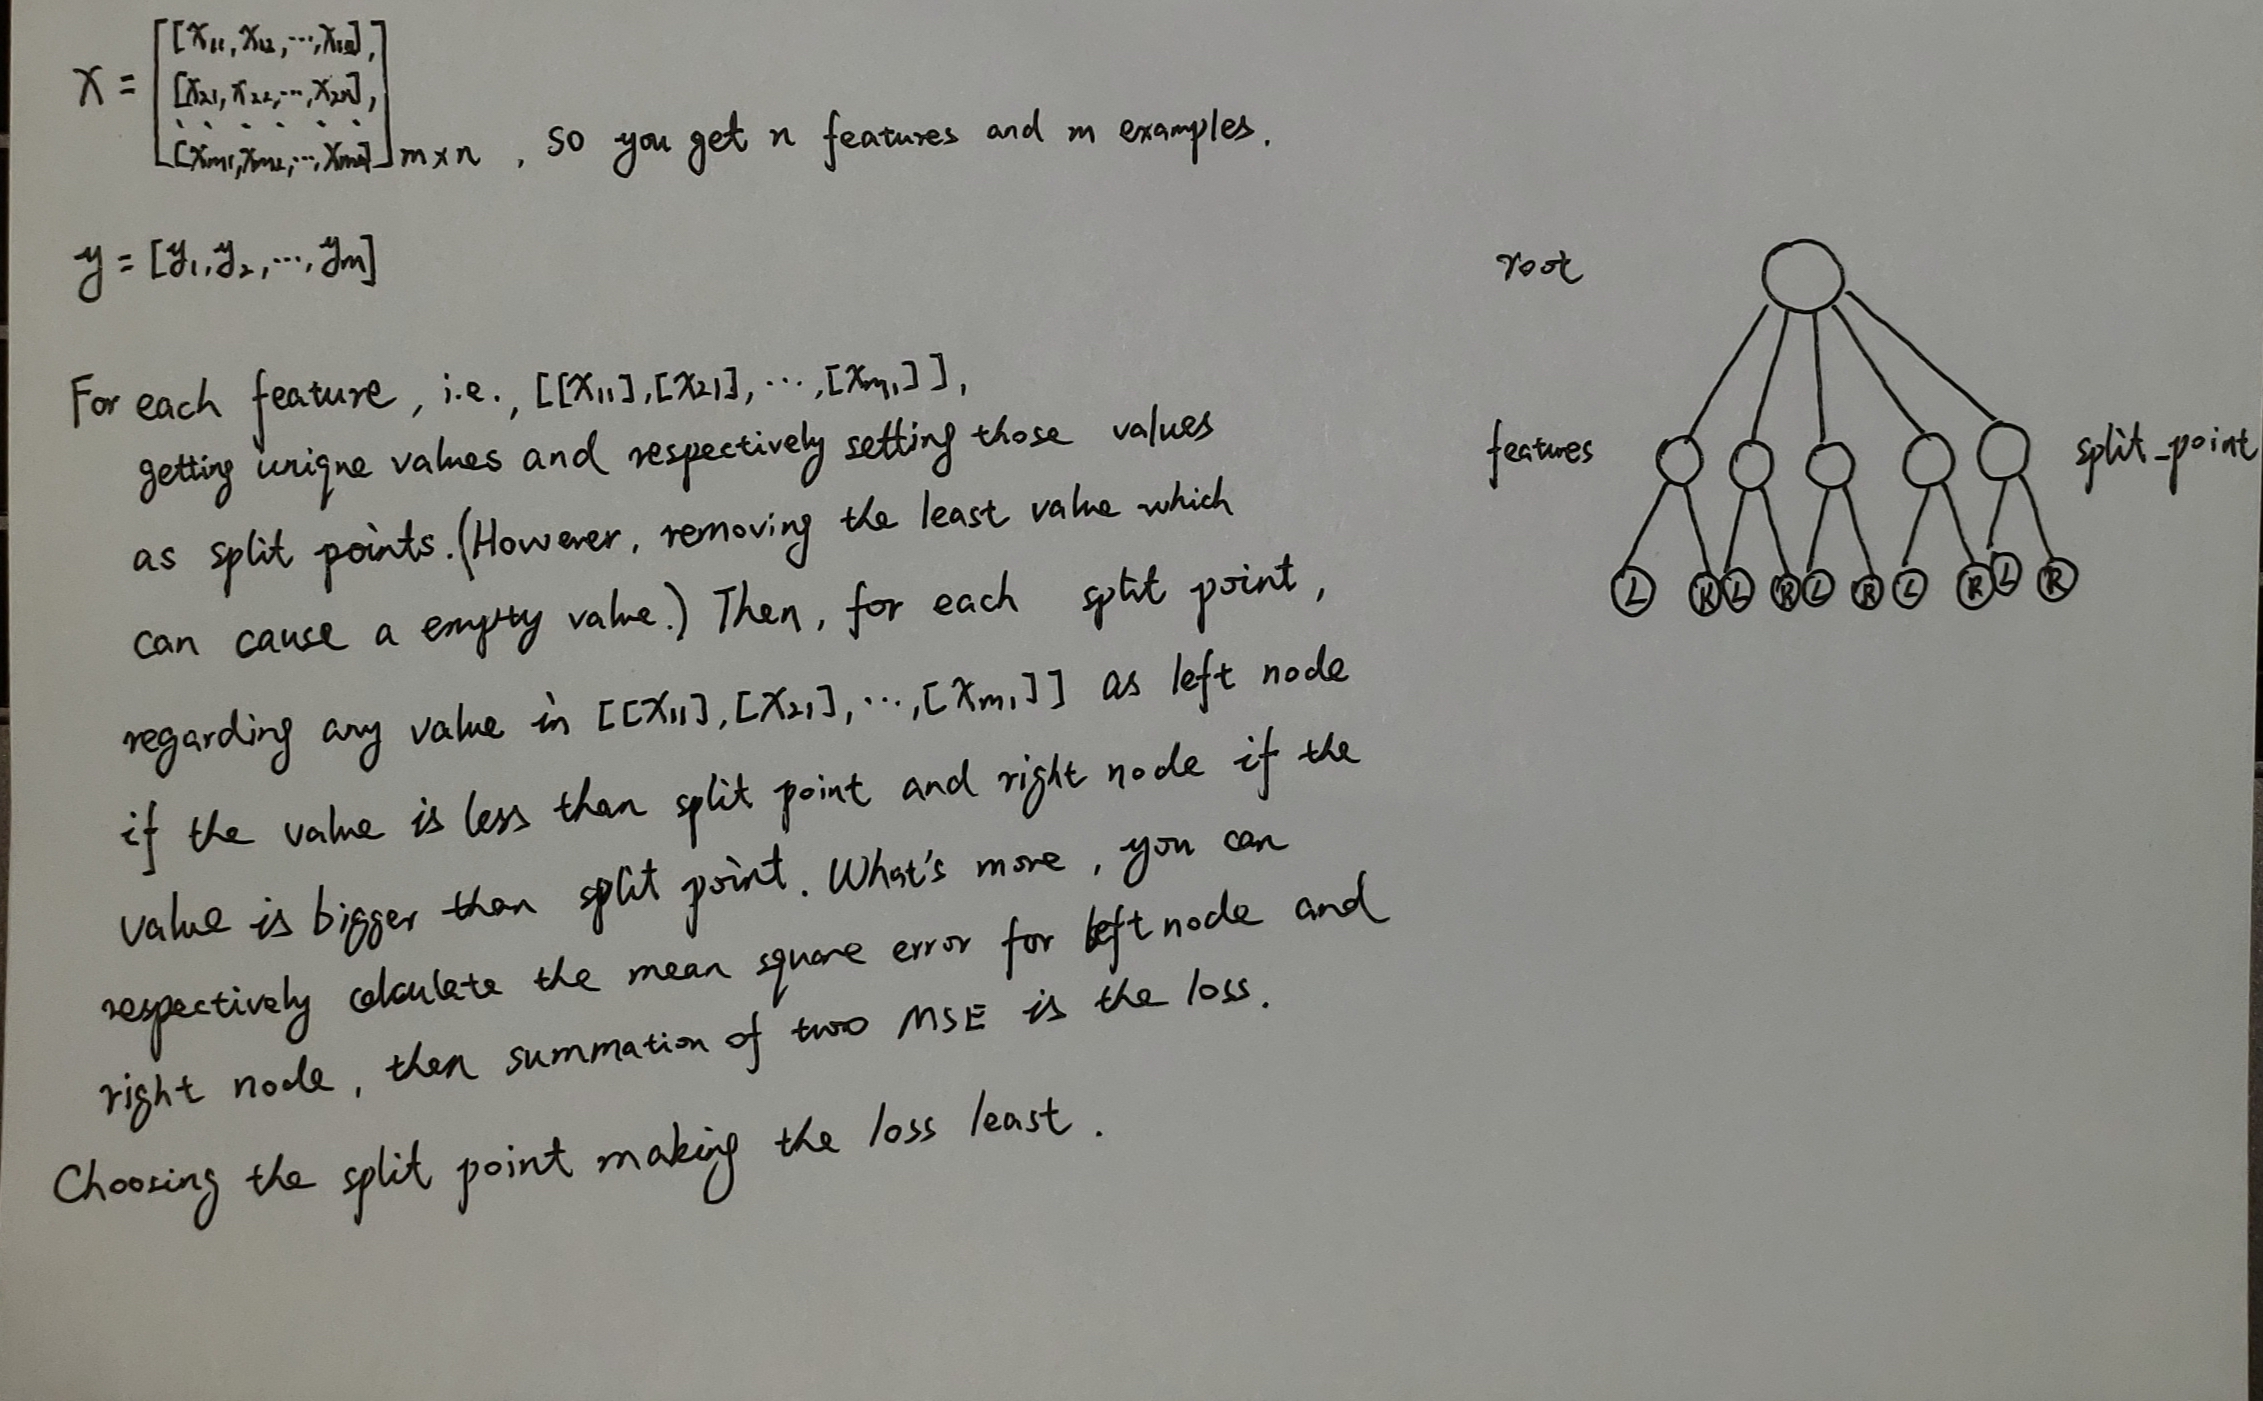 X = [[x11, x12, ..., x1n],
[x21, x22, ..., x2n],
. . . . . .
[xm1, xm2, ..., xmn]] m×n , so you get n features and m examples.
y = [y1, y2, ..., ym]
For each feature, i.e., [[x11], [x21], ..., [xm1]],
getting unique values and respectively setting those values
as split points. (However, removing the least value which
can cause a empty value.) Then, for each split point,
regarding any value in [[x11], [x21], ..., [xm1]] as left node
if the value is less than split point and right node if the
value is bigger than split point. What's more, you can
respectively calculate the mean square error for left node and
right node, then summation of two MSE is the loss.
Choosing the split point making the loss least.
root
features split_point
L R L R L R L R L R